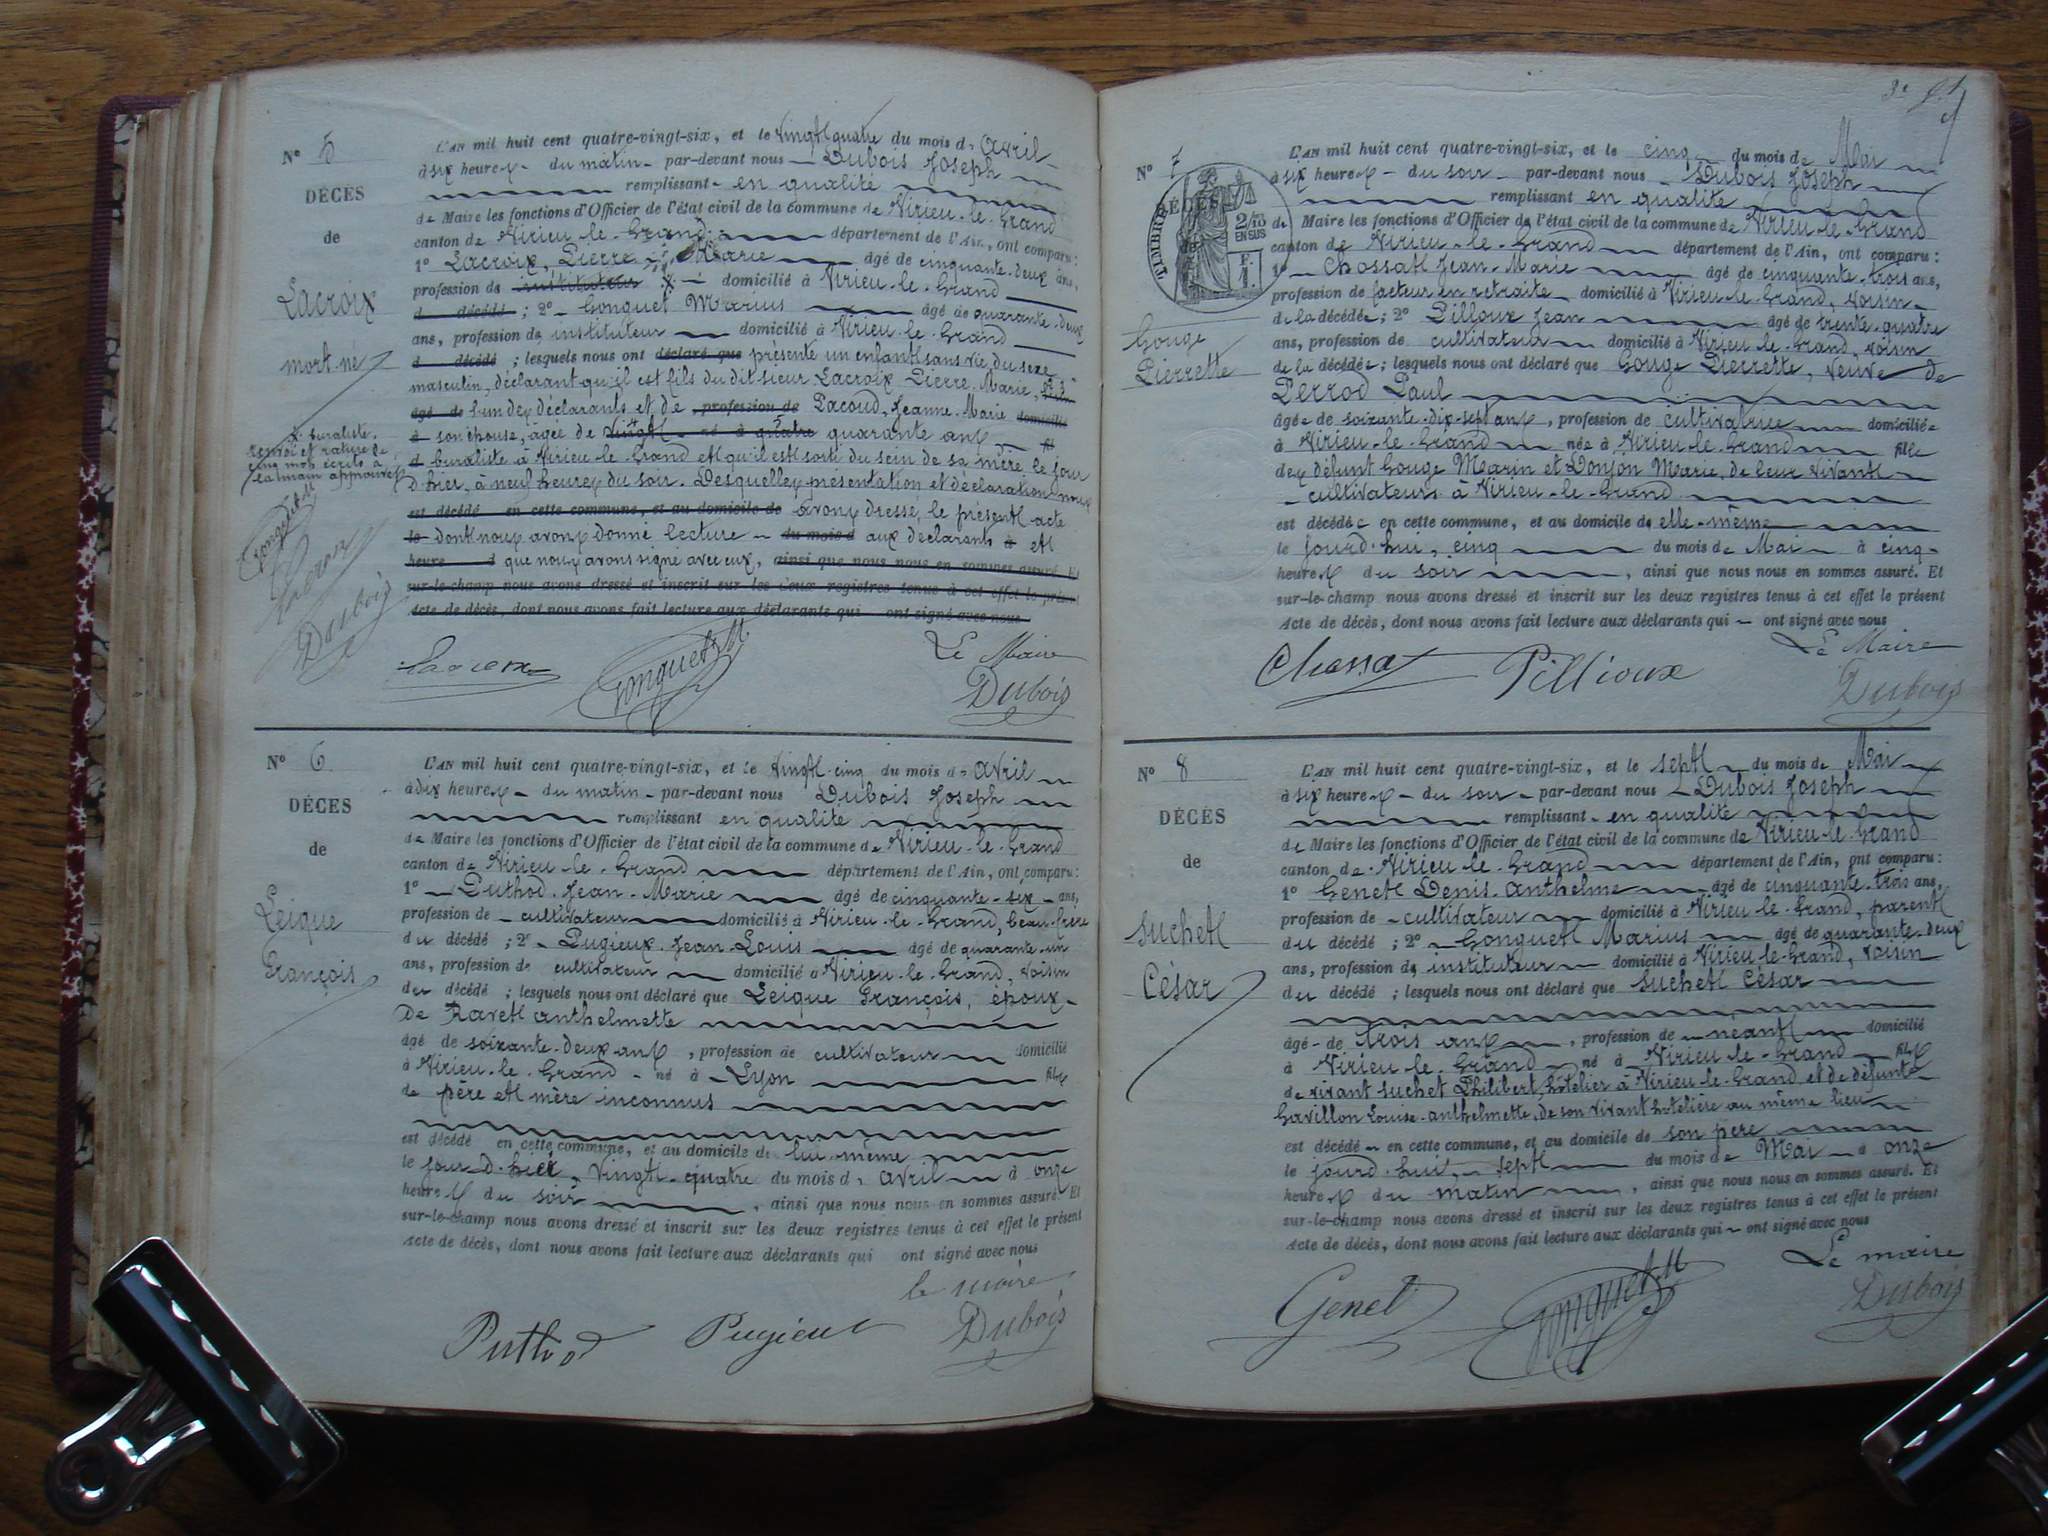 N° 5
DÉCÈS
de
Lacroix
mort-né
L'AN mil huit cent quatre-vingt-six, et le vingt quatre du mois d'Avril
à six heures du matin par-devant nous Dubois Joseph
remplissant en qualité
de Maire les fonctions d'Officier de l'état civil de la commune de Virieu-le-Grand
canton de Virieu-le-Grand département de l'Ain, ont comparu :
1° Lacroix, Pierre Marie âgé de cinquante-deux ans,
profession de instituteur domicilié à Virieu-le-Grand
d décédé ; 2° Gonguet Marius âgé de quarante-deux
ans, profession de instituteur domicilié à Virieu-le-Grand
d décédé ; lesquels nous ont déclaré que présenté un enfant sans vie, du sexe
masculin, déclarant qu'il est fils du dit sieur Lacroix Pierre Marie,
âgé de l'un des déclarants et de profession de Pacoud, Jeanne-Marie domicilié
à son épouse, âgée de vingt né à quatre quarante ans
d buraliste à Virieu-le-Grand et qu'il est sorti du sein de sa mère le jour
d'hier, à neuf heures du soir. Desquelles présentation et déclaration nous
est décédé en cette commune, et au domicile de avons dressé, le présent acte
le dont nous avons donné lecture du mois d aux déclarants à et
heure d que nous avons signé avec eux, ainsi que nous nous en sommes assuré. Et
sur-le-champ nous avons dressé et inscrit sur les deux registres tenus à cet effet le présent
Acte de décès, dont nous avons fait lecture aux déclarants qui ont signé avec nous
buraliste.
renvoi et rature de
cinq mots écrits à
la main approuvés
Gonguet M
Lacroix
Dubois
Lacroix
Gonguet M
Le Maire
Dubois
N° 6
DÉCÈS
de
Leique
François
L'AN mil huit cent quatre-vingt-six, et le vingt-cinq du mois d'Avril
à dix heures du matin par-devant nous Dubois Joseph
remplissant en qualité
de Maire les fonctions d'Officier de l'état civil de la commune de Virieu-le-Grand
canton de Virieu-le-Grand département de l'Ain, ont comparu :
1° Puthod Jean-Marie âgé de cinquante-six ans,
profession de cultivateur domicilié à Virieu-le-Grand, beau-frère
du décédé ; 2° Pugieux Jean-Louis âgé de quarante-un
ans, profession de cultivateur domicilié à Virieu-le-Grand, voisin
du décédé ; lesquels nous ont déclaré que Leique François, époux
de Ravet anthelmette
âgé de soixante-deux ans, profession de cultivateur domicilié
à Virieu-le-Grand né à Lyon fils
de père et mère inconnus
est décédé en cette commune, et au domicile de lui-même
le jour d'hier, vingt-quatre du mois d'avril à onze
heures du soir, ainsi que nous nous en sommes assuré. Et
sur-le-champ nous avons dressé et inscrit sur les deux registres tenus à cet effet le présent
Acte de décès, dont nous avons fait lecture aux déclarants qui ont signé avec nous
le maire
Puthod
Pugieux
Dubois
N° 7
DÉCÈS
TIMBRE
2/10
EN SUS
F.
1.
Gouge
Pierrette
L'AN mil huit cent quatre-vingt-six, et le cinq du mois de Mai
à six heures du soir par-devant nous Dubois Joseph
remplissant en qualité
de Maire les fonctions d'Officier de l'état civil de la commune de Virieu-le-Grand
canton de Virieu-le-Grand département de l'Ain, ont comparu :
1° Chossat Jean-Marie âgé de cinquante-trois ans,
profession de facteur en retraite domicilié à Virieu-le-Grand, voisin
de la décédée ; 2° Pillioux Jean âgé de trente-quatre
ans, profession de cultivateur domicilié à Virieu-le-Grand, voisin
de la décédée ; lesquels nous ont déclaré que Gouge Pierrette, veuve de
Perrod Paul
âgée de soixante-dix-sept ans, profession de cultivatrice domiciliée
à Virieu-le-Grand née à Virieu-le-Grand fille
des défunt Gouge Marin et Donjon Marie, de leur vivant
cultivateurs à Virieu-le-Grand
est décédée en cette commune, et au domicile de elle-même
le jourd'hui, cinq du mois de Mai à cinq
heures du soir, ainsi que nous nous en sommes assuré. Et
sur-le-champ nous avons dressé et inscrit sur les deux registres tenus à cet effet le présent
Acte de décès, dont nous avons fait lecture aux déclarants qui ont signé avec nous
Le Maire
Chossat
Pillioux
Dubois
N° 8
DÉCÈS
de
Suchet
César
L'AN mil huit cent quatre-vingt-six, et le sept du mois de Mai
à six heures du soir par-devant nous Dubois Joseph
remplissant en qualité
de Maire les fonctions d'Officier de l'état civil de la commune de Virieu-le-Grand
canton de Virieu-le-Grand département de l'Ain, ont comparu :
1° Genet Denis-Anthelme âgé de cinquante-trois ans,
profession de cultivateur domicilié à Virieu-le-Grand, parent
du décédé ; 2° Gonguet Marius âgé de quarante-deux
ans, profession de instituteur domicilié à Virieu-le-Grand, voisin
du décédé ; lesquels nous ont déclaré que Suchet César
âgé de trois ans, profession de néant domicilié
à Virieu-le-Grand né à Virieu-le-Grand fils
de vivant Suchet Philibert, hôtelier à Virieu-le-Grand et de défunte
Gavillon Louise-anthelmette, de son vivant hotelière au même lieu
est décédé en cette commune, et au domicile de son père
le jourd'hui, sept du mois de Mai à onze
heures du matin, ainsi que nous nous en sommes assuré. Et
sur-le-champ nous avons dressé et inscrit sur les deux registres tenus à cet effet le présent
Acte de décès, dont nous avons fait lecture aux déclarants qui ont signé avec nous
Le maire
Genet
Gonguet M
Dubois